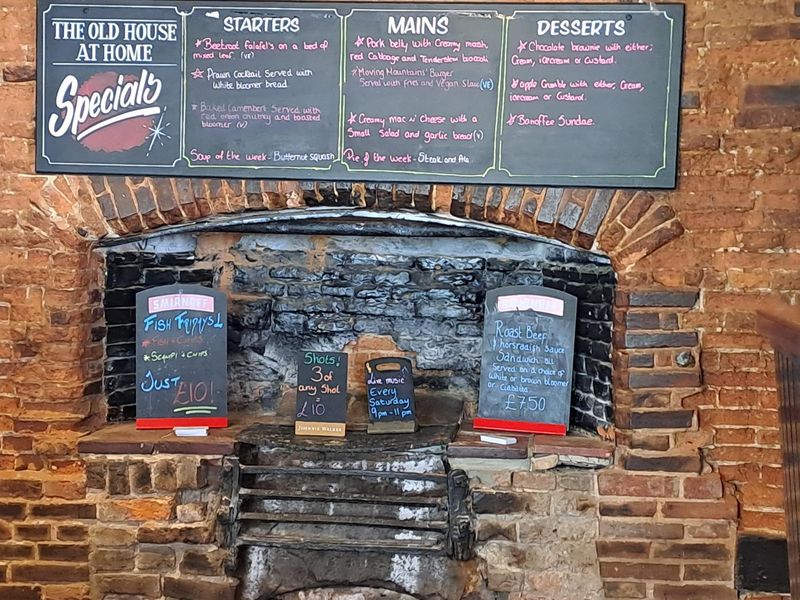 THE OLD HOUSE
AT HOME
Specials
STARTERS
Beetroot falafel's on a bed of
mixed leaf. (VE)
Prawn Cocktail Served with
White bloomer bread.
Baked Camembert Served with
red onion chutney and toasted
bloomer (V)
Soup of the week - Butternut squash
MAINS
Pork belly with Creamy mash,
red Cabbage and Tenderstem broccoli
'Moving Mountains' Burger
Served with fries and Vegan Slaw (VE)
Creamy mac n Cheese with a
Small Salad and garlic bread (V)
Pie of the week - Steak and Ale
DESSERTS
Chocolate brownie with either;
Cream, icecream or Custard.
apple Crumble with either, Cream,
icecream or Custard.
Banoffee Sundae.
SMIRNOFF
FISH FRIDAYS!
FISH + CHIPS
SCAMPI + CHIPS
JUST
£10!
Shots!
3 of
any Shot
=
£10
JOHNNIE WALKER
Live MUSIC
Every
Saturday
9pm - 11pm
Roast Beef
& horsradish Sauce
Sandwich all
Served on a choice of
White or brown bloomer
or Ciabatta
£7.50